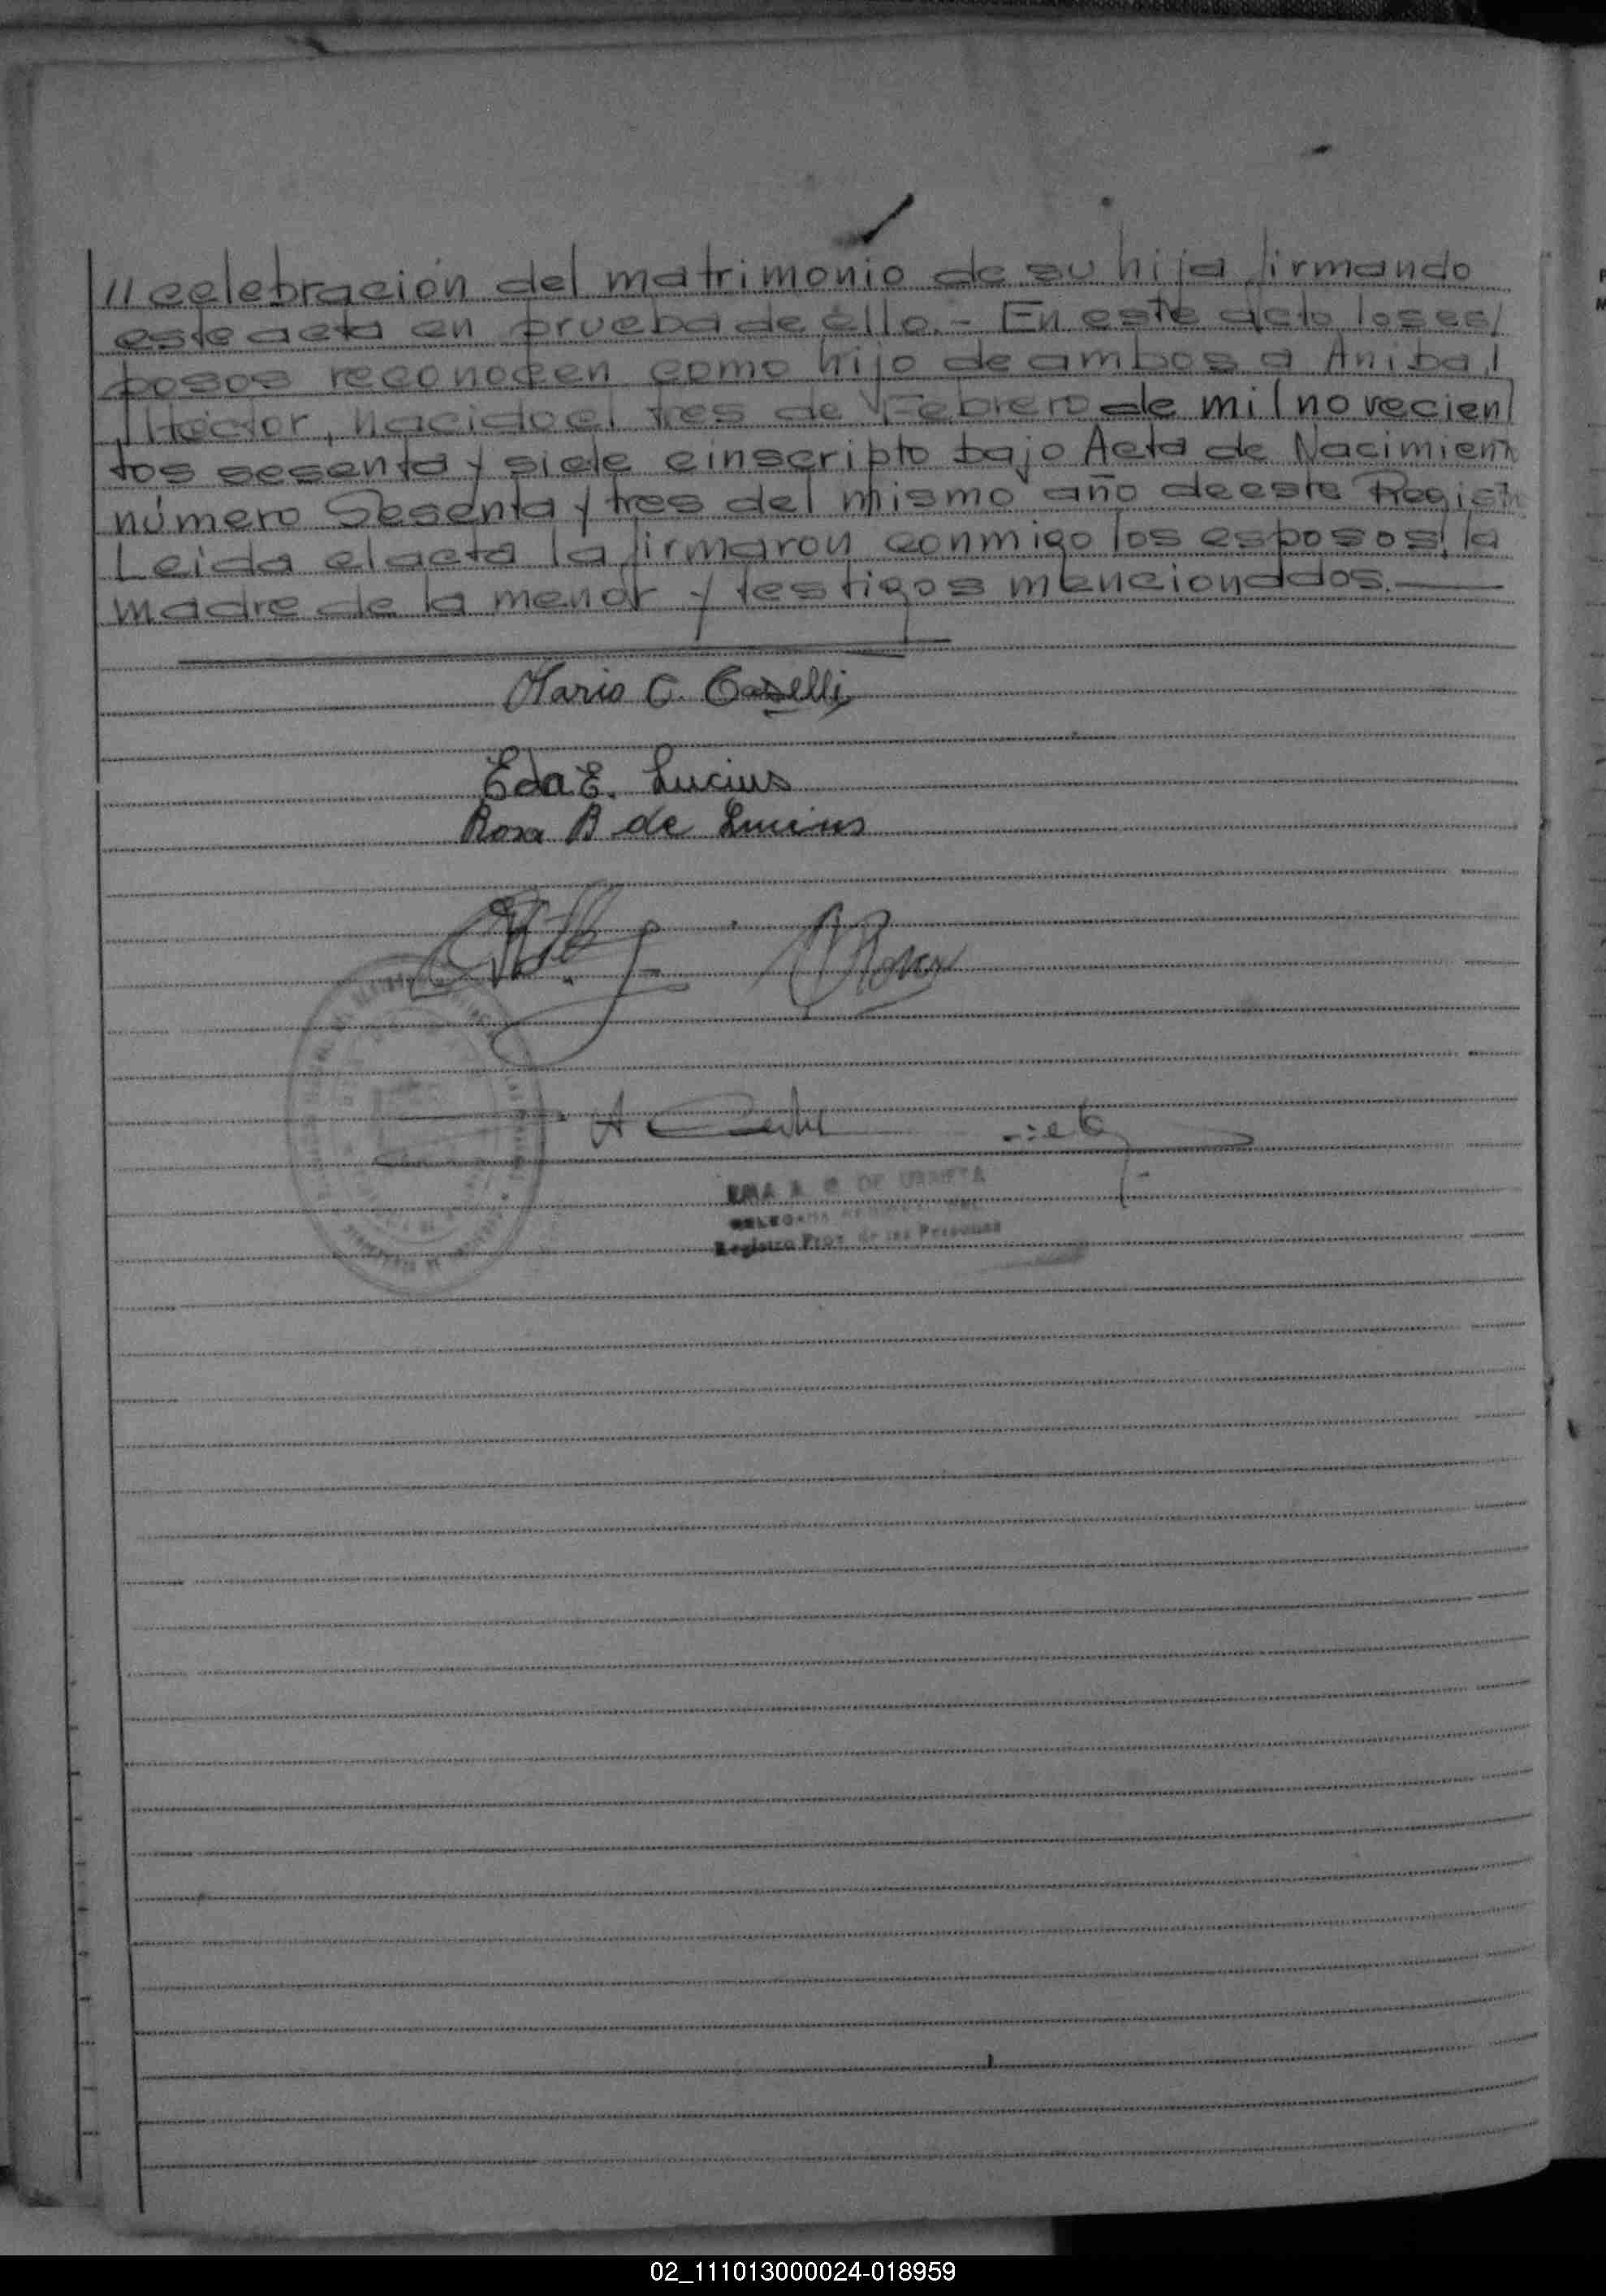 //celebración del matrimonio de su hija firmando
este acta en prueba de éllo.- En este acto los es/
posos reconocen como hijo de ambos a Anibal
Héctor, nacido el tres de Febrero de mil novecien/
tos sesenta y siete e inscripto bajo Acta de Nacimient
número Sesenta y tres del mismo año de este Registr
Leida el acta la firmaron conmigo los esposos, la
madre de la menor y testigos mencionados.
Mario C. Caselli
Eda E. Lucius
Rosa B de Lucius
DE URRIETA
Registro Prov. de las Personas
02_111013000024-018959